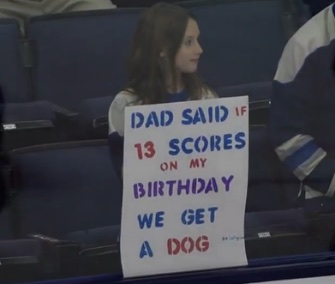 DAD SAID IF
13 SCORES
ON MY
BIRTHDAY
WE GET
A DOG